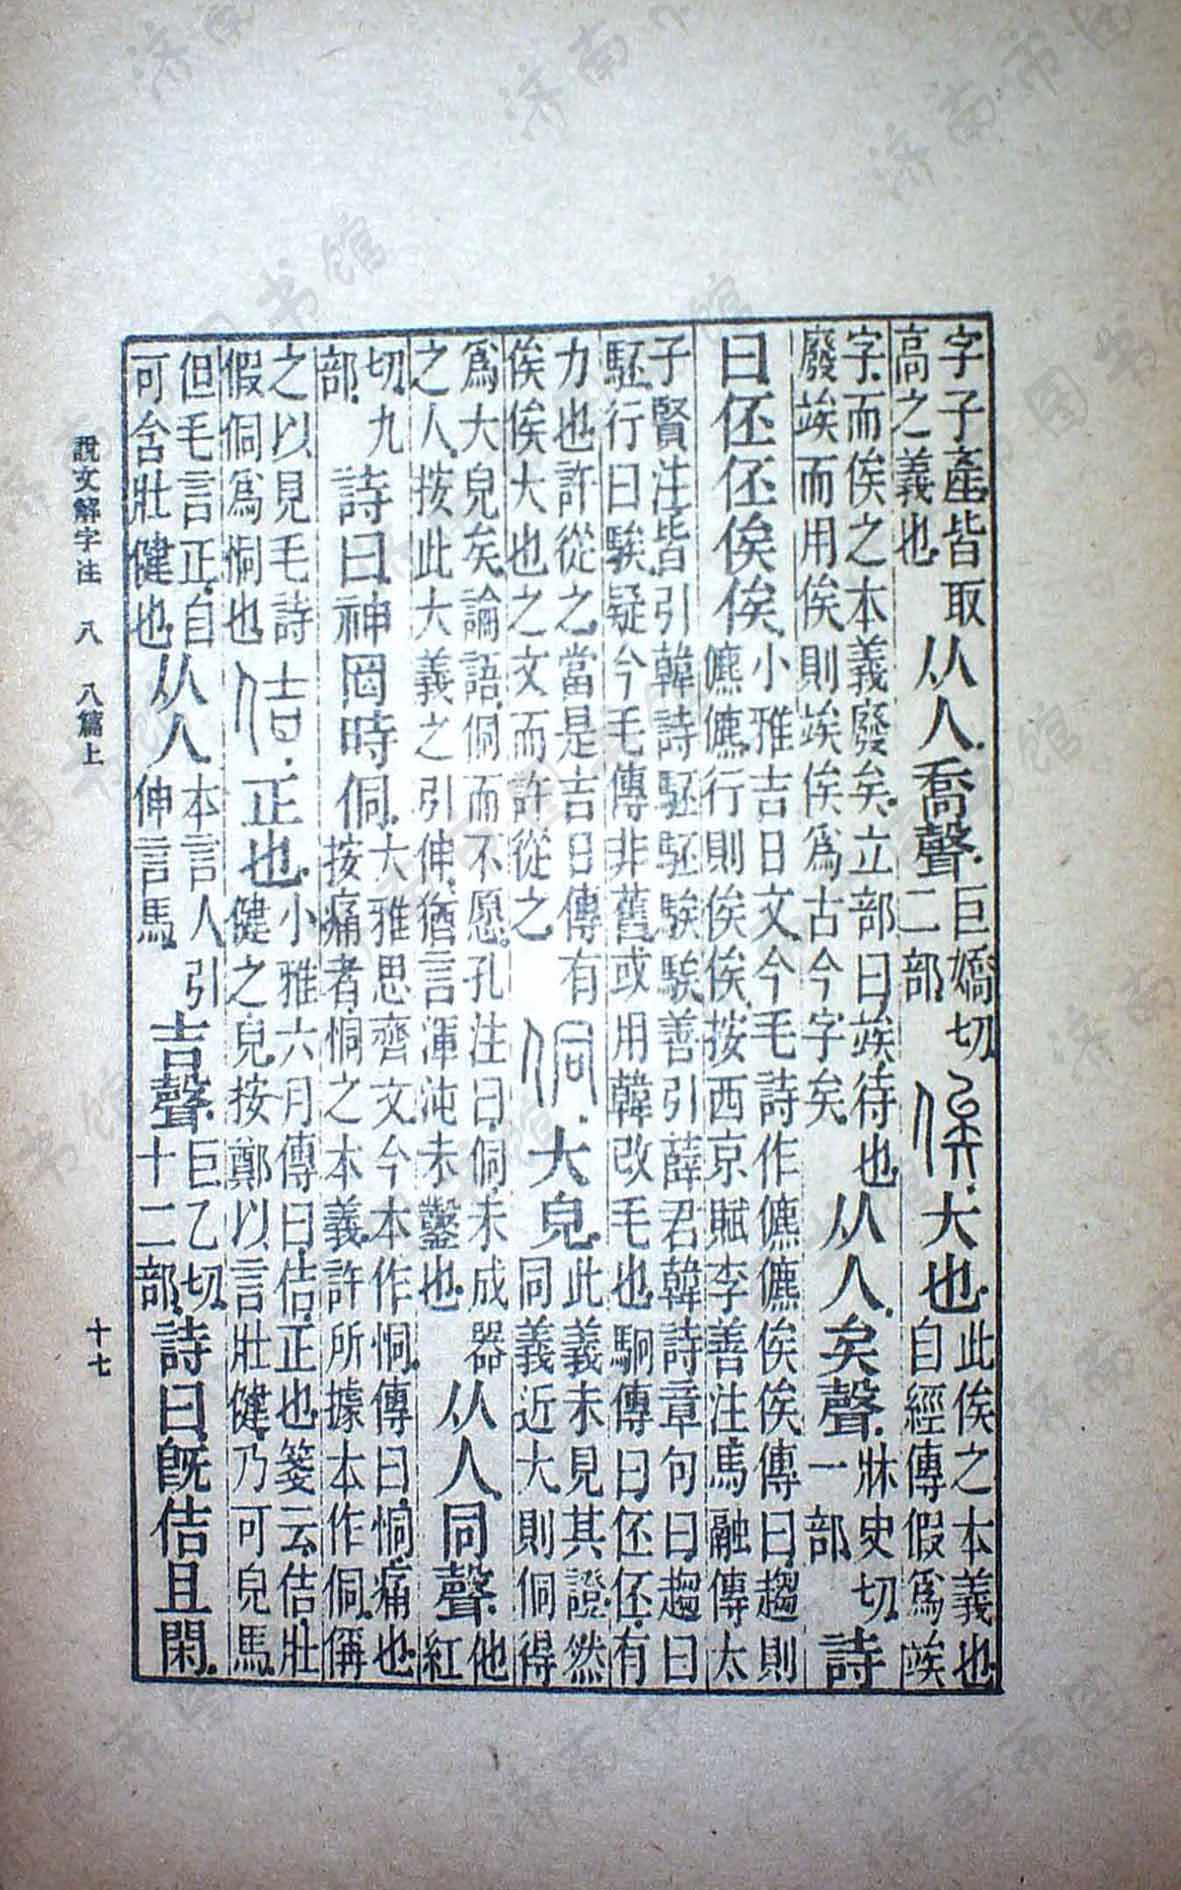 字子產皆取高之義也从人喬聲巨嬌切二部俟大也此俟之本義也自經傳假爲竢
字而俟之本義廢矣立部曰竢待也廢竢而用俟則竢俟爲古今字矣从人矣聲牀史切一部詩
曰伾伾俟俟小雅吉日文今毛詩作儦儦俟俟傳曰趨則儦儦行則俟俟按西京賦李善注馬融傳太
子賢注皆引韓詩駓駓騃騃善引薛君韓詩章句曰趨曰駓行曰騃疑今毛傳非舊或用韓改毛也駉傳曰伾伾有
力也許從之當是吉日傳有俟俟大也之文而許從之侗大皃此義未見其證然同義近大則侗得
爲大皃矣論語侗而不愿孔注曰侗未成器之人按此大義之引伸猶言渾沌未鑿也从人同聲他紅
切九部詩曰神罔時侗大雅思齊文今本作恫傳曰恫痛也按痛者恫之本義許所據本作侗偁
之以見毛詩假侗爲恫也佶正也小雅六月傳曰佶正也箋云佶壯健之皃按鄭以言壯健乃可皃馬
但毛言正自可含壯健也从人本言人引伸言馬吉聲巨乙切十二部詩曰旣佶且閑
說文解字注 八 八篇上
十七
济南市图书馆